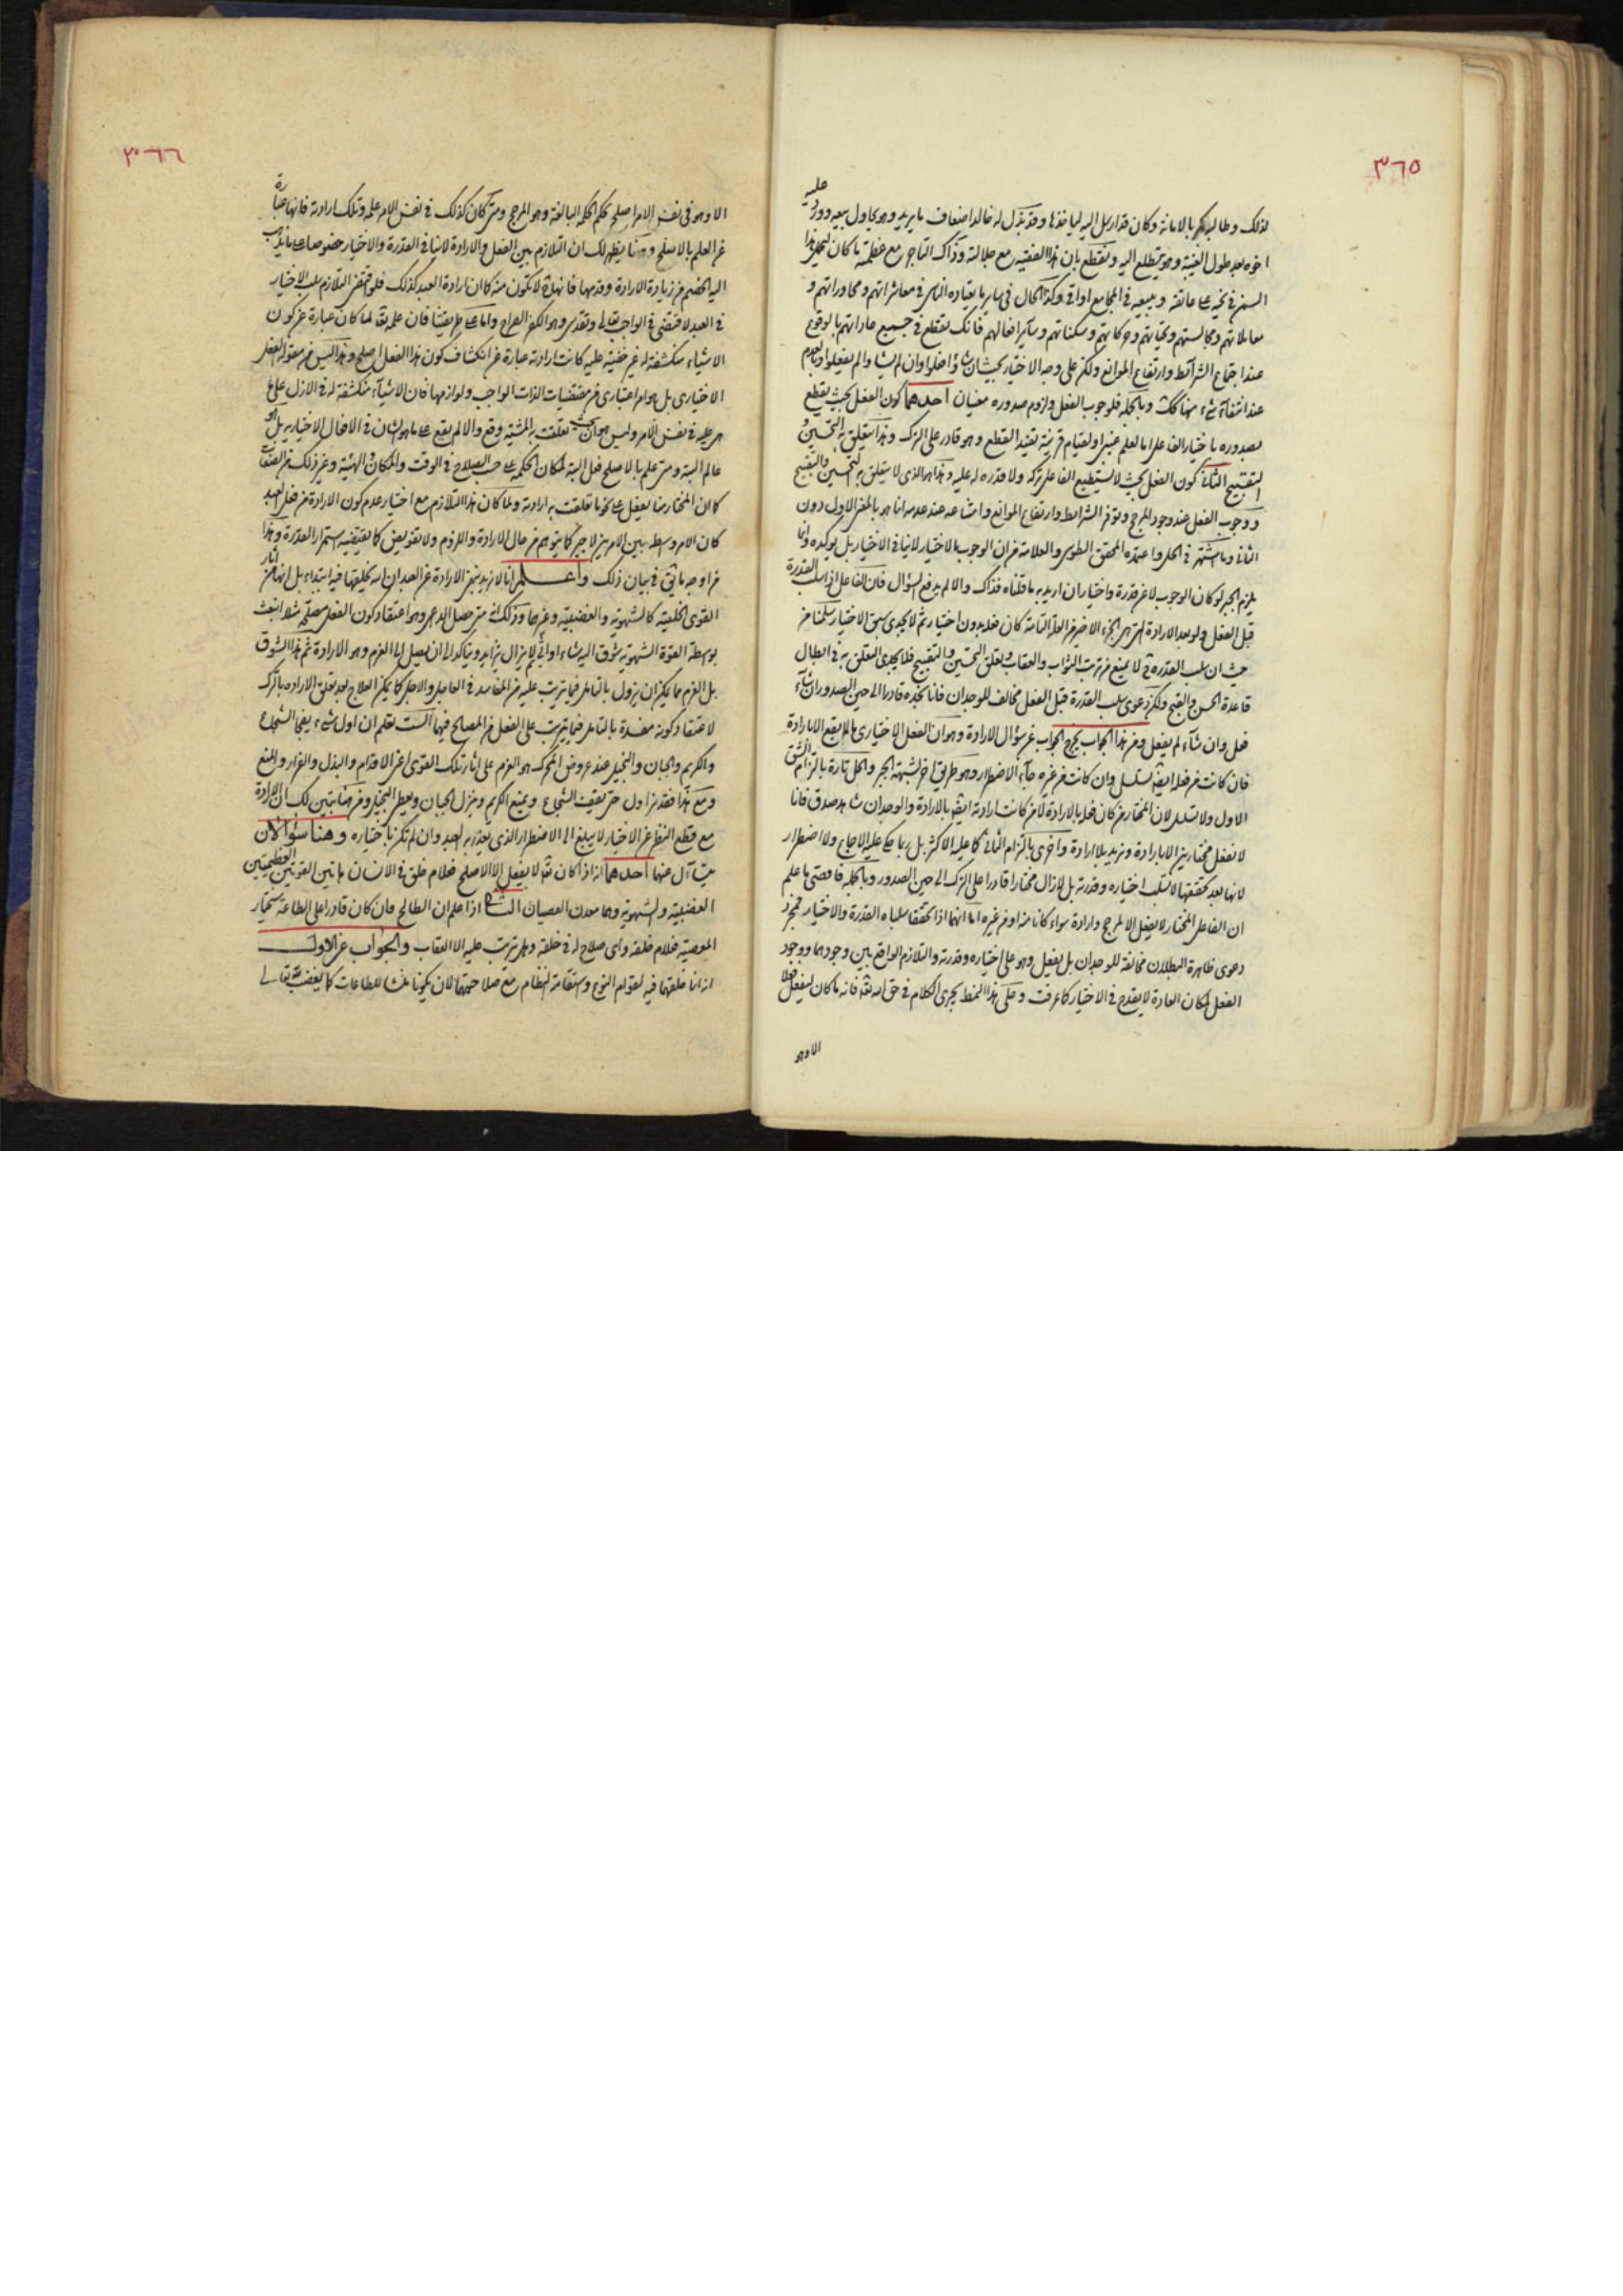 ٣٦٥
عليه
لذلك وطالبه بالامانة وكان قد ارسل اليه ليأخذها وقد بذل له خالد اضعاف ما يريد وهو يحاول بيعه وورد
اخوه بعد طول الغيبة وهو يتطلع اليه ونقطع بان هذا الفقيه مع جلالته وذاك التاجر مع عظمته ما كان ليحمل هذا
عاتقه ويبيعه في المجامع اواقي وكذا الحال في ساير ما يعتاده الناس في معاشراتهم ومحاوراتهم و
معاملاتهم ومجالستهم وتحياتهم وحركاتهم وسكناتهم وساير افعالهم فانك تقطع في جميع عاداتهم بالوقوع
عند اجتماع الشرائط وارتفاع الموانع ولكن على وجه الاختيار بحيث ان شاؤا فعلوا وان لم يشاؤا لم يفعلوا وبالعدم
عند انتفاء شيء منها كك وبالجملة فلوجوب الفعل ولزوم صدوره معنيان احدهما كون الفعل بحيث يقطع
بصدوره باختيار الفاعل اما لعلم غيبي او لقيام قرينة تفيد القطع وهو قادر على الترك وهذا يتعلق به التحسين و
التقبيح الثاني كون الفعل بحيث لا يستطيع الفاعل تركه ولا قدرة له عليه وهذا هو الذي لا يتعلق به التحسين والتقبيح
ووجوب الفعل عند وجود المرجح وتوفر الشرائط وارتفاع الموانع وامتناعه عند عدمه انما هو بالمعنى الاول دون
الثاني وما اشتهر في الحل واعتمده المحقق الطوسي والعلامة من ان الوجوب بالاختيار لا ينافي الاختيار بل يؤكده وانما
يلزم الجبر لو كان الوجوب لا عن قدرة واختيار ان اريد به ما قلناه فذاك والا لم يدفع السؤال فان الفاعل اذا سلب القدرة
قبل الفعل ولو بعد الارادة التي هي الجزء الاخير من العلة التامة كان فعله بدون اختيار ثم لا يجدي سبق الاختيار سلمنا من
حيث ان سلب القدرة لا يمنع من ترتب الثواب والعقاب وتعلق التحسين والتقبيح فلا يجدي التعلق به في ابطال
قاعدة الحسن والقبح ولكن دعوى سلب القدرة قبل الفعل مخالف للوجدان فانا نجده قادرا الى حين الصدور ان شاء
فعل وان شاء لم يفعل ومن هذا الجواب يخرج الجواب عن سؤال الارادة وهو ان الفعل الاختياري ما لا يقع الا بارادة
فان كانت من فعله ايضا تسلسل وان كانت من غيره جاء الاضطرار وهو طريق آخر لشبهة الجبر والحل تارة بالتزام الشق
الاول ولا تسلسل لان المختار من كان فعله بالارادة لا من كانت ارادته ايضا بالارادة والوجدان شاهد صدق فانا
لا نفعل مختارين الا بارادة ونريد بلا ارادة واخرى بالتزام الثاني كما عليه الاكثر بل ربما حكي عليه الاجماع ولا اضطرار
لانها بعد تحققها لا تسلب اختياره وقدرته بل لا يزال مختارا قادرا على الترك الى حين الصدور وبالجملة فاقصى ما علم
ان الفاعل المختار لا يفعل الا لمرجح وارادة سواء كانا منه او من غيره اما انهما اذا تحققا سلباه القدرة والاختيار فمجرد
دعوى ظاهرة البطلان مخالفة للوجدان بل يفعل وهو على اختياره وقدرته والتلازم الواقع بين وجودهما ووجود
الفعل لمكان العادة لا يقدح في الاختيار كما عرفت وعلى هذا النمط يجري الكلام في حق الله تعالى فانه ما كان ليفعل فعلا
الا وهو
٣٦٦
الا وهو في نفس الامر اصلح بحكم الحكمة البالغة وهو المرجح ومتى كان كذلك في نفس الامر علمه وتلك ارادته فانها عبارة
عن العلم بالاصلح ومن هنا يظهر لك ان التلازم بين الفعل والارادة لا ينافي القدرة والاختيار خصوصا على ما يذهب
اليه الخصم من زيادة الارادة وقدمها فانها لا تكون منه كما ان ارادة العبد كذلك فلو اقتضى التلازم سلب الاختيار
في العبد لاقتضى في الواجب تعالى وتقدس وهو الكفر الصراح واما على طريقتنا فان علمه تعالى لما كان عبارة عن كون
الاشياء منكشفة له غير خفية عليه كانت ارادته عبارة عن انكشاف كون هذا الفعل اصلح وهذا ليس من مقولة الفعل
الاختياري بل هو امر اعتباري من مقتضيات الذات الواجب ولوازمها فان الاشياء منكشفة له في الازل على ما
هي عليه في نفس الامر وليس هو بحيث ان تعلقت به المشية وقع والا لم يقع على ما هو الشان في الافعال الاختيارية بل هو
عالم البتة ومتى علم بالاصلح فعل البتة لمكان الحكمة على حسب الصلاح في الوقت والمكان والهيئة وغير ذلك من الصفات
كما ان المختار منا يفعل على نحو ما تعلقت به ارادته ولما كان هذا التلازم مع اختيار عدم كون الارادة من فعل العبد
كان الامر وسطه بين الامرين لا جبر كما يتوهم من حال الارادة واللزوم ولا تفويض كما يقتضيه استمرار القدرة وهذا
من اوجه ما قيل في بيان ذلك واعلم انا لا نريد بنفي الارادة عن العبد ان الله يخلقها فيه ابتداء بل انها من آثار
القوى الخلقية كالشهوية والغضبية وغيرهما وذلك انه متى حصل الداعي وهو اعتقاد كون الفعل مصلحة مثلا انبعث
بواسطة القوة الشهوية شوق اليه شاء او ابى ثم لا يزال يتزايد ويتاكد الى ان يصل الى العزم وهو الارادة ثم هذا الشوق
بل العزم مما يمكن ان يزول بالتامل فيما يترتب عليه من المفاسد في العاجل والاجل كما يمكن العلاج بعد تعلق الارادة بالترك
لاعتقاد كونه مفسدة بالتامل فيما يترتب على الفعل من المصالح فيهما الست تعلم ان اول شيء يفجأ الشجاع
والكريم والجبان والبخيل عند عروض المحرك هو العزم على آثار تلك القوى اعني الاقدام والبذل والفرار والمنع
ومع هذا فقد يزاول حتى يقف الشجاع ويمنع الكريم وينزل الجبان ويعطي البخيل ومن هنا يتبين لك ان الارادة
مع قطع النظر عن الاختيار لا يبلغ الى الاضطرار الذي يعذر به العبد وان لم تكن باختياره وهنا سؤالان
يتسائل عنهما احدهما انه اذا كان الله لا يفعل الا الاصلح فلم خلق في الانسان هاتين القوتين العظيمتين
الغضبية والشهوية وهما معدن العصيان الثاني اذا علم ان الطالح وان كان قادرا على الطاعة سيختار
المعصية فلم خلقه واي صلاح له في خلقه وهل يترتب عليه الا العقاب والجواب عن الاول
انه انما خلقهما فيه لقوام النوع واستقامة النظام مع صلاحيتهما لان يكونا منشأ للطاعات كما يغضب لله تعالى